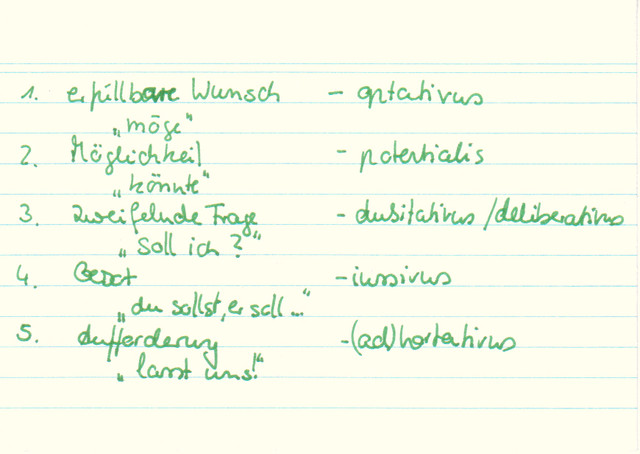 1. erfüllbare Wunsch - optativus
„möge"
2. Möglichkeit - potentialis
„könnte"
3. zweifelnde Frage - dubitativus/deliberativus
„soll ich?"
4. Gebot - iussivus
„du sollst, er soll..."
5. Aufforderung - (ad)hortativus
„lasst uns!"